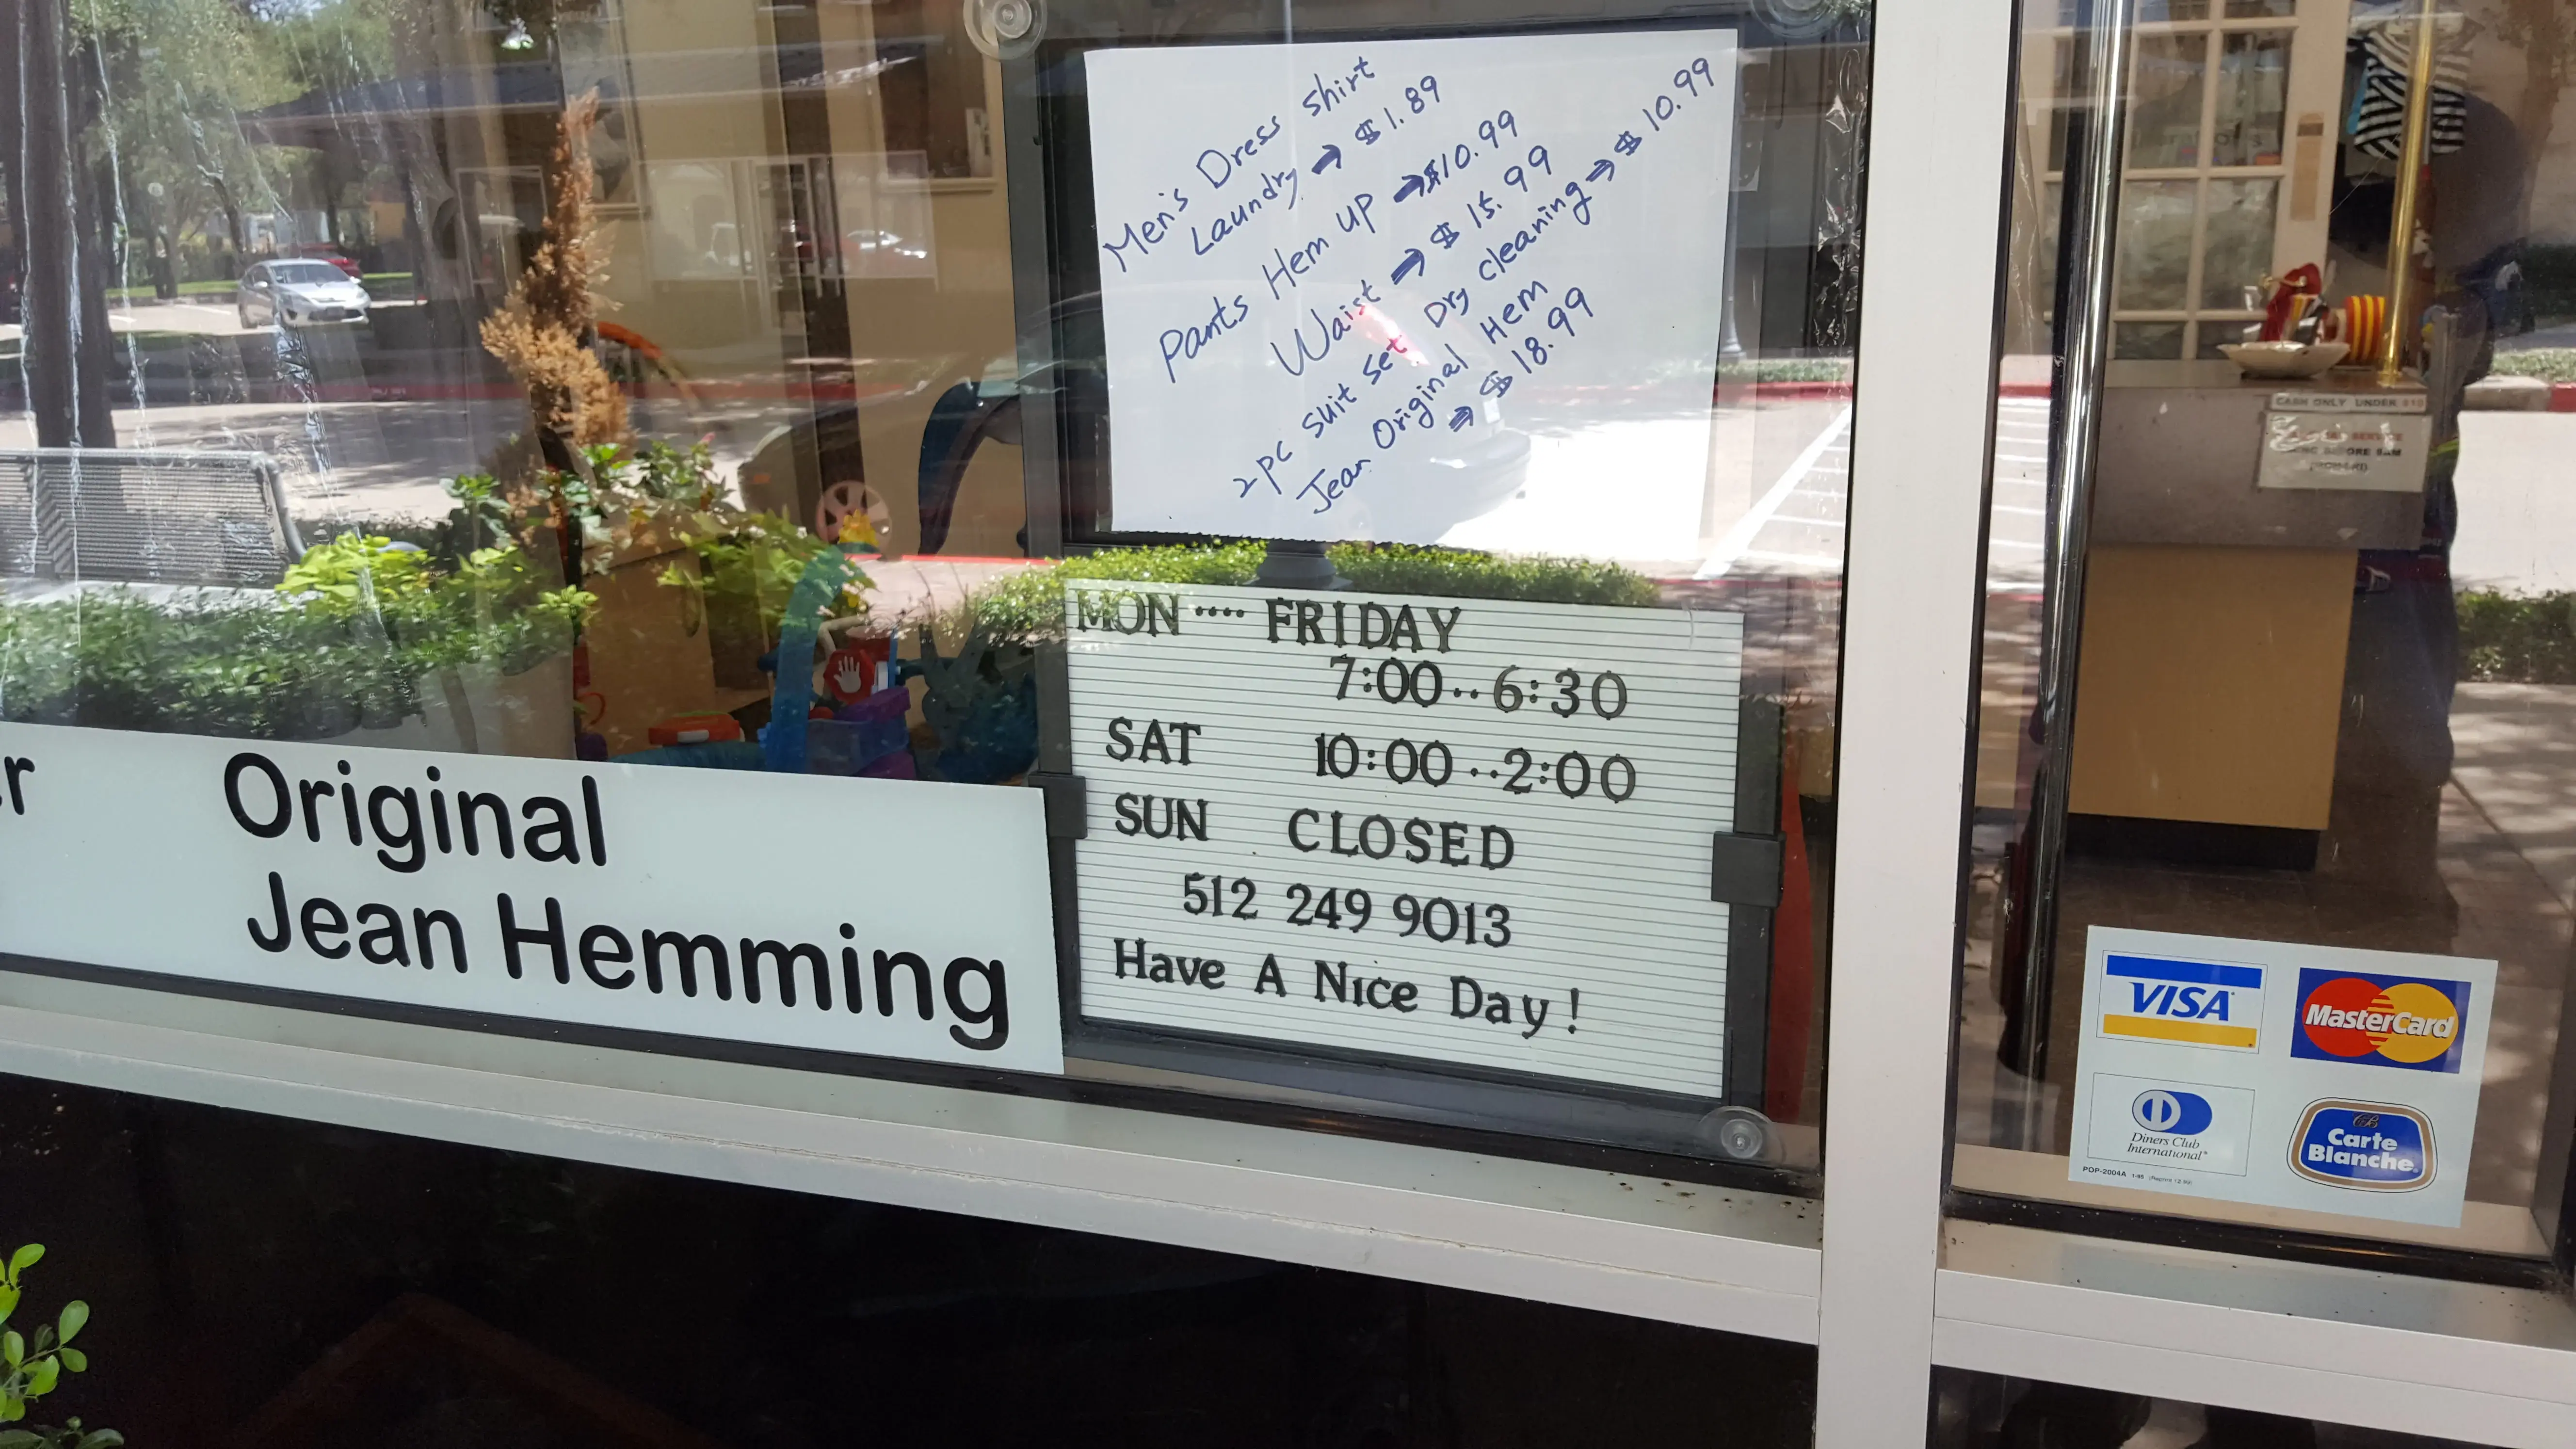 Men's Dress shirt
Laundry → $1.89
Pants Hem up → $10.99
Waist → $15.99
2pc suit set Dry cleaning → $10.99
Jean Original Hem
→ $18.99
MON .... FRIDAY
7:00..6:30
SAT 10:00..2:00
SUN CLOSED
512 249 9013
Have A Nice Day!
Original
Jean Hemming
CASH ONLY UNDER $10
SERVICE
BEFORE 9AM
VISA
MasterCard
Diners Club
International
CB
Carte
Blanche
POP-2004A